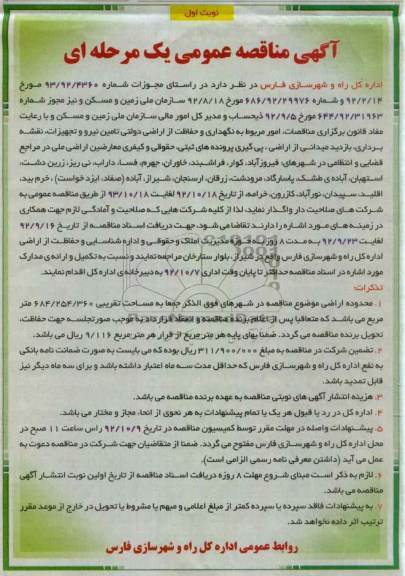 نوبت اول
آگهی مناقصه عمومی یک مرحله ای
اداره کل راه و شهرسازی فارس در نظر دارد در راستای مجوزات شماره ۹۳/۹۲/۴۳۶۰ مورخ
۹۲/۲/۱۴ و شماره ۶۸۶/۹۲/۲۹۹۷۶ مورخ ۹۲/۸/۱۸ سازمان ملی زمین و مسکن و نیز مجوز شماره
۶۴۴/۹۲/۳۱۹۶۳ مورخ ۹۲/۹/۵ ذیحساب و مدیر کل امور مالی سازمان ملی زمین و مسکن و با رعایت
مفاد قانون برگزاری مناقصات، امور مربوط به نگهداری و حفاظت از اراضی دولتی تامین نیرو و تجهیزات، نقشه
برداری، بازدید میدانی از اراضی، پی گیری پرونده های ثبتی، حقوقی و کیفری معارضین اراضی ملی در مراجع
قضایی و انتظامی در شهرهای: فیروزآباد، کوار، فراشبند، خاوران، جهرم، فسا، داراب، نی ریز، زرین دشت،
استهبان، آباده ی طشک، پاسارگاد، مرودشت، زرقان، ارسنجان، شیراز، آباده (صفاد، ایزدخواست)، خرم بید،
اقلید، سپیدان، نورآباد، کازرون، خرامه، از تاریخ ۹۲/۱۰/۱۸ لغایت ۹۳/۱۰/۱۸ از طریق مناقصه عمومی به
شرکت های صلاحیت دار واگذار نماید، لذا از کلیه شرکت هایی که صلاحیت و آمادگی لازم جهت همکاری
در زمینه های مورد اشاره را دارند تقاضا می شود، جهت دریافت اسناد مناقصه از تاریخ ۹۲/۹/۱۶
لغایت ۹۲/۹/۲۳ به مدت ۸ روز به حوزه مدیریت املاک و حقوقی و اداره شناسایی و حفاظت از اراضی
اداره کل راه و شهرسازی فارس واقع در شیراز، بلوار ستارخان مراجعه نمایند و نسبت به تکمیل و ارائه ی مدارک
مورد اشاره در اسناد مناقصه حداکثر تا پایان وقت اداری ۹۲/۱۰/۷ به دبیرخانه ی اداره کل اقدام نمایند.
تذکرات:
۱. محدوده اراضی موضوع مناقصه در شهرهای فوق الذکر جمعا به مساحت تقریبی ۶۸۴/۲۵۲/۳۶۰ متر
مربع می باشد که متعاقبا پس از اعلام برنده مناقصه و انعقاد قرارداد به موجب صورتجلسه جهت حفاظت،
تحویل برنده مناقصه می گردد. ضمنا بهای پایه هر متر مربع از قرار هر متر مربع ۹/۱۱۶ ریال می باشد.
۲. تضمین شرکت در مناقصه به مبلغ ۳۱۱/۹۰۰/۰۰۰ ریال بوده که می بایست به صورت ضمانت نامه بانکی
به نفع اداره کل راه و شهرسازی فارس که حداقل مدت سه ماه اعتبار داشته باشد و برای سه ماه دیگر نیز
قابل تمدید باشد.
۳. هزینه انتشار آگهی های نوبتی مناقصه به عهده برنده مناقصه می باشد.
۴. اداره کل در رد یا قبول هر یک یا تمام پیشنهادات به هر نحوی از انحا، مجاز و مختار می باشد.
۵. پیشنهادات واصله در مهلت مقرر توسط کمیسیون مناقصه در تاریخ ۹۲/۱۰/۹ راس ساعت ۱۱ صبح در
محل اداره کل راه و شهرسازی فارس مفتوح می گردد. ضمنا از متقاضیان جهت شرکت در مناقصه دعوت به
عمل می آید (داشتن معرفی نامه رسمی الزامی است).
۶. لازم به ذکر است مبنای شروع مهلت ۸ روزه دریافت اسناد مناقصه از تاریخ اولین نوبت انتشار آگهی
مناقصه می باشد.
۷. به پیشنهادات فاقد سپرده یا سپرده کمتر از مبلغ اعلامی و مبهم یا مشروط یا تحویل در خارج از موعد مقرر
ترتیب اثر داده نخواهد شد.
روابط عمومی اداره کل راه و شهرسازی فارس